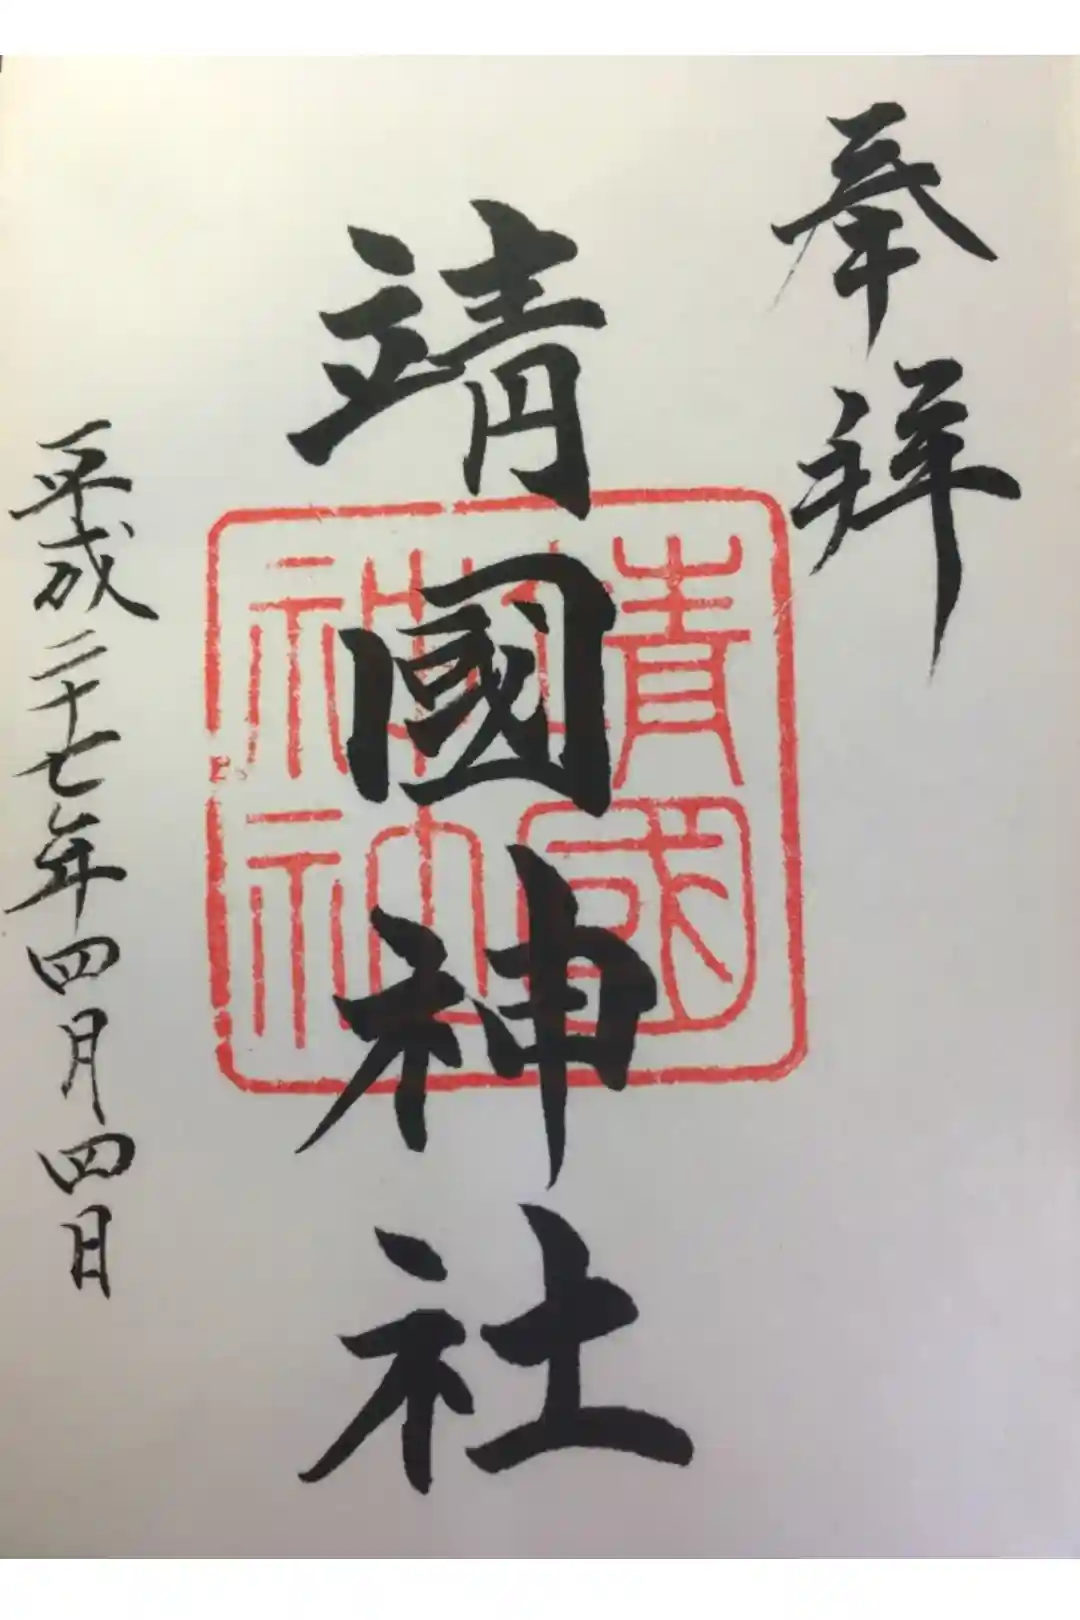 奉拜
靖國神社
靖國神社
平成二十七年四月四日